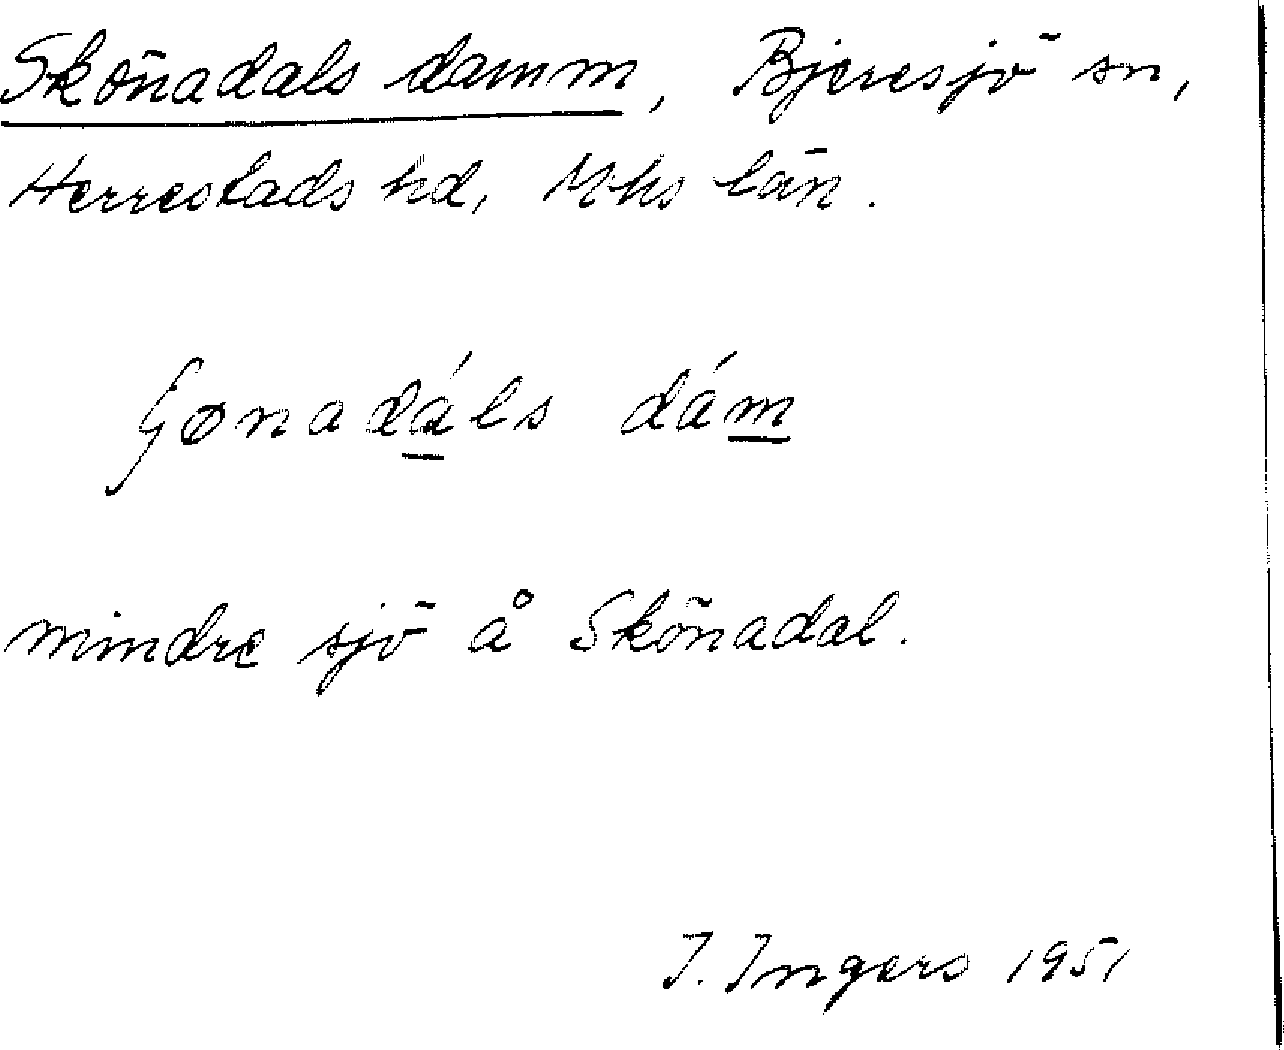 Skönadals damm, Bjeresjö sn,
Herrestads hd, Mhs län.
dám
mindre sjö å Skönadal.
I. Ingers 1951